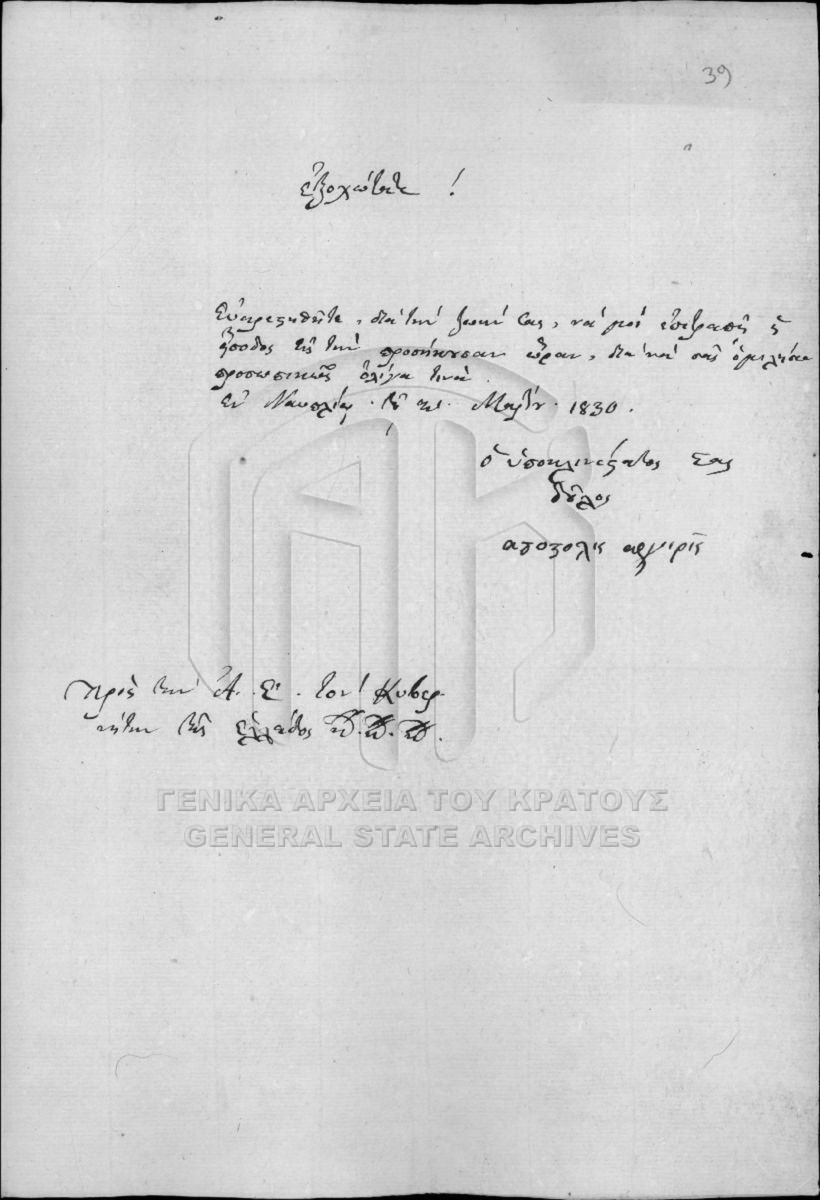 39
ἐξοχώτατε !
Εὐαρεστηθῆτε, διὰ τὴν ζωήν σας, νὰ μοὶ ἐπιτραπῇ ἡ
εἴσοδος εἰς τὴν προσήκουσαν ὥραν, διὰ νὰ σᾶς ὁμιλήσω
προσωπικῶς ὀλίγα τινά.
Ἐν Ναυπλίῳ. τῇ Μαρτίου. 1830.
ὁ ὑποκλινέστατος σας
δοῦλος
αποστολις αργιρις
Πρὸς τὴν Α. Ε. τὸν Κυβερ-
νήτην τῆς Ἑλλάδος
ΓΕΝΙΚΑ ΑΡΧΕΙΑ ΤΟΥ ΚΡΑΤΟΥΣ
GENERAL STATE ARCHIVES